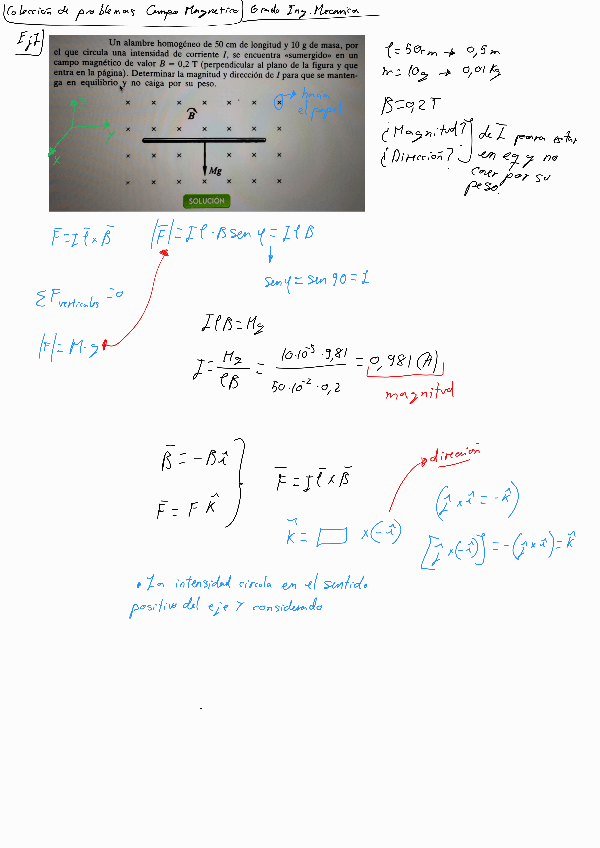 Colección de problemas Campo Magnetico Grado Ing. Mecanica
Ej 1
Un alambre homogéneo de 50 cm de longitud y 10 g de masa, por
el que circula una intensidad de corriente I, se encuentra «sumergido» en un
campo magnético de valor B = 0,2 T (perpendicular al plano de la figura y que
entra en la página). Determinar la magnitud y dirección de I para que se manten-
ga en equilibrio y no caiga por su peso.
hacia
el papel
B
Z
Y
X
Mg
SOLUCIÓN
l = 50cm → 0,5m
m = 10g → 0,01 Kg
B = 0,2 T
¿Magnitud?
¿Dirección?
de I para estar
en eq y no
caer por su
peso.
F̄ = I l̄ x B̄
|F̄| = I l · B sen φ = I l B
sen φ = sen 90 = 1
ΣF verticales = 0
|F̄| = M · g
I l B = Mg
I = Mg / lB = 10·10⁻³ · 9,81 / 50·10⁻² · 0,2 = 0,981 (A)
magnitud
B̄ = -B î
F̄ = F K̂
F̄ = I l̄ x B̄
dirección
K̂ = □ x (-î)
(ĵ x î = -K̂)
[ĵ x (-î)] = -(ĵ x î) = K̂
• La intensidad circula en el sentido
positivo del eje Y considerado